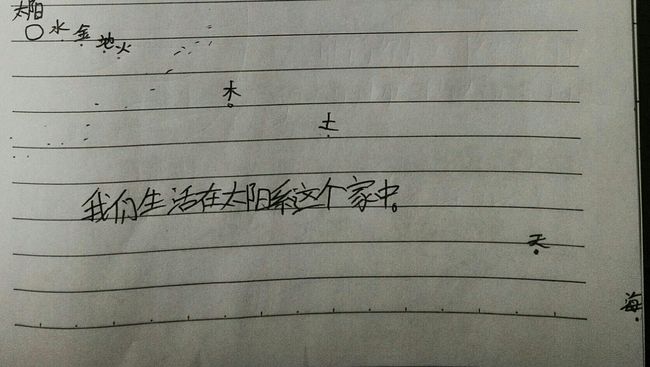 太阳
水 金 地 火
木
土
我们生活在太阳系这个家中。
天
海